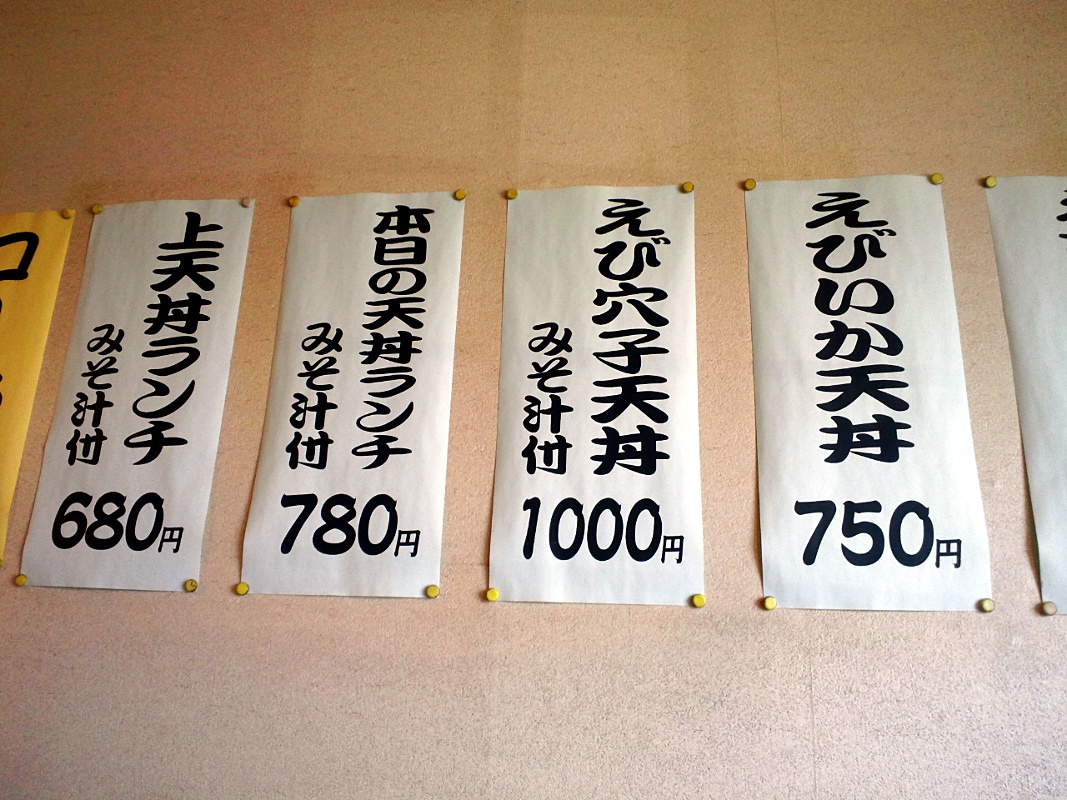 上天丼ランチ
みそ汁付
680円
本日の天丼ランチ
みそ汁付
780円
えび穴子天丼
みそ汁付
1000円
えびいか天丼
750円